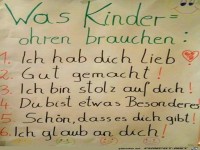 Was Kinder=
ohren brauchen:
1. Ich hab dich lieb ♡
2. Gut gemacht!
3. Ich bin stolz auf dich!
4. Du bist etwas Besonderes
5. Schön, dass es dich gibt!
6. Ich glaub an dich!